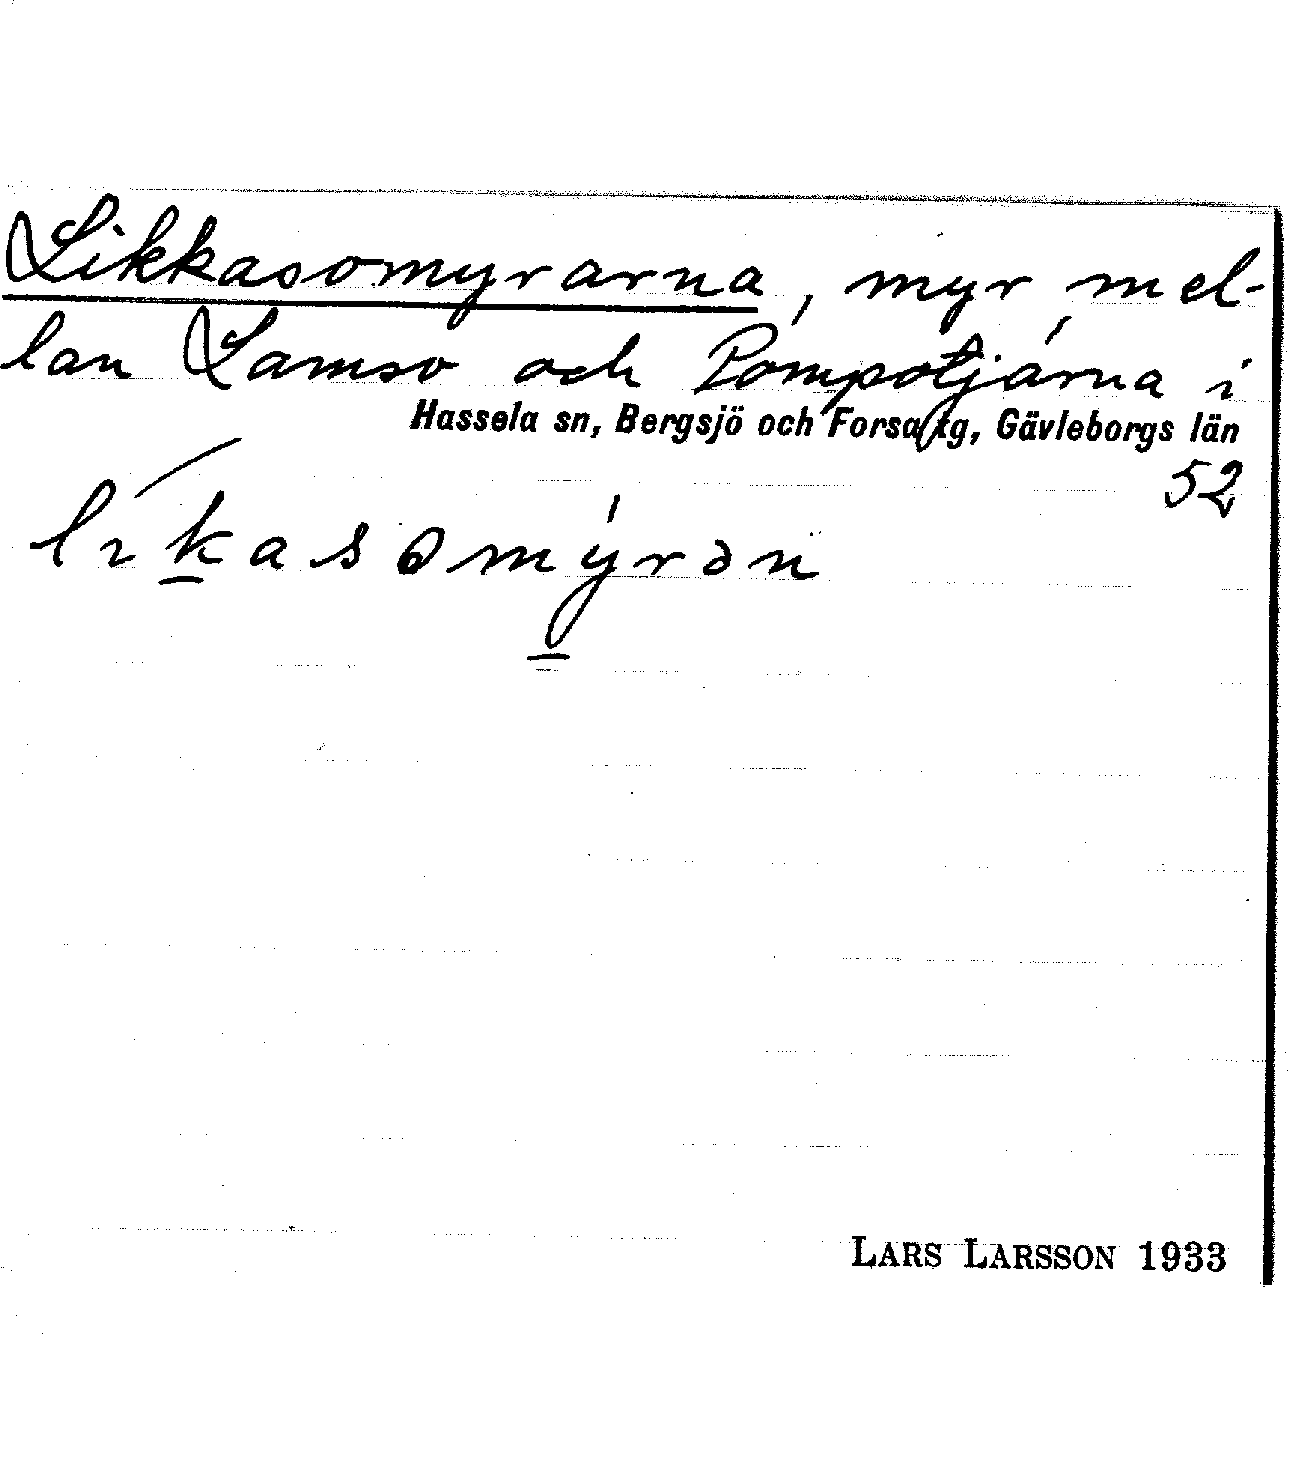 Likkasomyrarna, myr mel-
lan Lamso och Pompotjárna i
Hassela sn, Bergsjö och Forsa tg, Gävleborgs län
52
lí̱kasomý̱rən
LARS LARSSON 1933